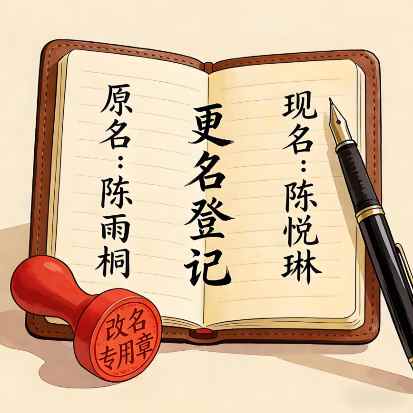 原名：陈雨桐
更名登记
现名：陈悦琳
改名
专用章